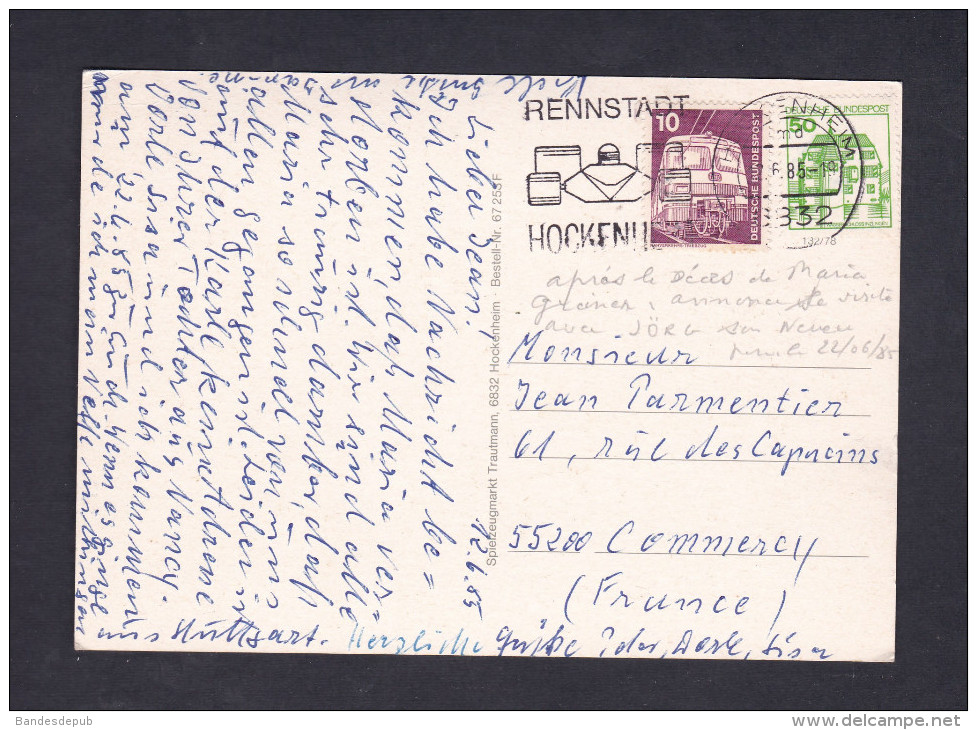 12.6.85
Lieber Jean!
Ich habe Nachricht be=
kommen, daß Maria ver=
storben ist. Wir sind alle
sehr traurig darüber, daß
Maria so schnell von uns
allen gegangen ist. Leider ist
auf der Karte kein Adresse
von Ihrer Tochter aus Nancy.
Vorle Lisa und ich kommen
am 22.6.85 zu Euch. Wenn es ginge
würde ich mein Neffe mitbringen
aus Stuttgart. Herzliche Grüße
RENNSTADT
HOCKENHEIM
10
DEUTSCHE BUNDESPOST
50
DEUTSCHE BUNDESPOST
.6.85-19
6832
132/78
Spielzeugmarkt Trautmann, 6832 Hockenheim · Bestell-Nr. 67 255 F
après le Décès de Maria
annonce sa visite
avec JÖRG son Neveu
22/06/85
Monsieur
Jean Parmentier
61, rue des Capucins
55200 Commercy
(France)
Bandesdepub
www.delcampe.net